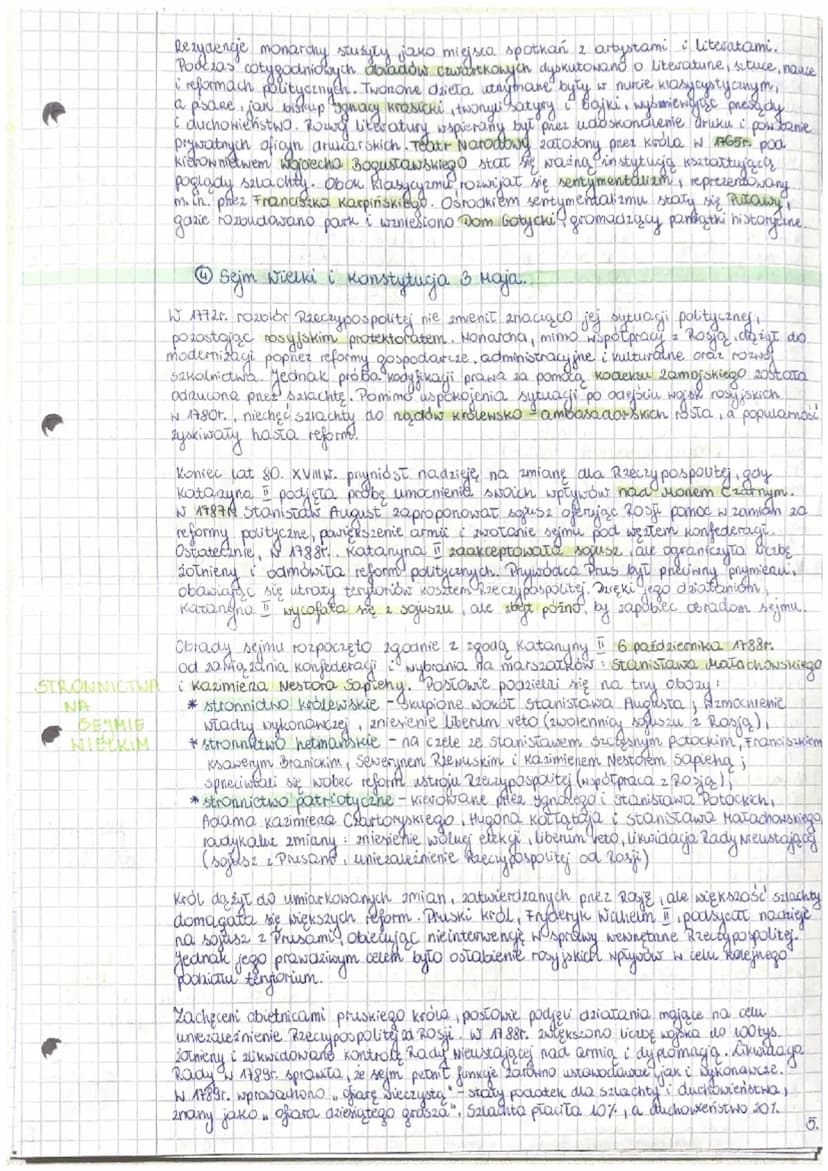 Rezydencje monarchy służyły jako miejsca spotkań z artystami i literatami.
Podczas cotygodniowych obiadów czwartkowych dyskutowano o literaturze, sztuce, nauce
i reformach politycznych. Tworzone dzieła utrzymane były w nurcie klasycystycznym,
a pisarze, jak biskup Ignacy Krasicki, tworzyli satyry i bajki, wyśmiewając przesądy
i duchowieństwo. Rozwój literatury wspierany był przez udoskonalenie druku i powstanie
prywatnych oficyn drukarskich. Teatr Narodowy założony przez króla w 1765r. pod
kierownictwem Wojciecha Bogusławskiego stał się ważną instytucją kształtującą
poglądy szlachty. Obok klasycyzmu, rozwijał się sentymentalizm, reprezentowany
m.in. przez Franciszka Karpińskiego. Ośrodkiem sentymentalizmu stały się Puławy,
gdzie rozbudowano park i wzniesiono Dom Gotycki, gromadzący pamiątki historyczne.
④ Sejm Wielki i Konstytucja 3 Maja.
W 1772r. rozbiór Rzeczypospolitej nie zmienił znacząco jej sytuacji politycznej,
pozostając rosyjskim protektoratem. Monarcha, mimo współpracy z Rosją, dążył do
modernizacji poprzez reformy gospodarcze, administracyjne i kulturalne oraz rozwój
szkolnictwa. Jednak próba kodyfikacji prawa za pomocą kodeksu Zamojskiego została
odrzucona przez szlachtę. Pomimo uspokojenia sytuacji po odejściu wojsk rosyjskich
w 1780r., niechęć szlachty do rządów królewsko-ambasadorskich rosła, a popularność
zyskiwały hasła reform.
Koniec lat 80. XVIIIw. przyniósł nadzieję na zmianę dla Rzeczypospolitej, gdy
Katarzyna II podjęła próbę umocnienia swoich wpływów nad Morzem Czarnym.
W 1787r. Stanisław August zaproponował sojusz oferując Rosji pomoc w zamian za
reformy polityczne, powiększenie armii i zwołanie sejmu pod węzłem konfederacji.
Ostatecznie, w 1788r. Katarzyna II zaakceptowała sojusz, ale ograniczyła liczbę
żołnierzy i odmówiła reform politycznych. Przywódca Prus był przeciwny przymierzu,
obawiając się utraty terytoriów kosztem Rzeczypospolitej. Dzięki jego działaniom,
Katarzyna II wycofała się z sojuszu, ale zbyt późno, by zapobiec obradom sejmu.
Obrady sejmu rozpoczęto zgodnie z zgodą Katarzyny II 6 października 1788r.
od zawiązania konfederacji i wybrania na marszałków: Stanisława Małachowskiego
i Kazimierza Nestora Sapiehy. Posłowie podzielili się na trzy obozy:
STRONNICTWA
NA
SEJMIE
WIELKIM
* stronnictwo królewskie - skupione wokół Stanisława Augusta; wzmocnienie
władzy wykonawczej, zniesienie liberum veto (zwolennicy sojuszu z Rosją),
* stronnictwo hetmańskie - na czele ze Stanisławem Szczęsnym Potockim, Franciszkiem
Ksawerym Branickim, Sewerynem Rzewuskim i Kazimierzem Nestorem Sapiehą;
sprzeciwiali się wobec reform ustroju Rzeczypospolitej (współpraca z Rosją),
* stronnictwo patriotyczne - kierowane przez Ignacego i Stanisława Potockich,
Adama Kazimierza Czartoryskiego, Hugona Kołłątaja i Stanisława Małachowskiego,
radykalne zmiany: zniesienie wolnej elekcji, liberum veto, likwidacja Rady Nieustającej
(sojusz z Prusami, uniezależnienie Rzeczypospolitej od Rosji)
Król dążył do umiarkowanych zmian, zatwierdzanych przez Rosję, ale większość szlachty
domagała się większych reform. Pruski król, Fryderyk Wilhelm II, podsycał nadzieje
na sojusz z Prusami, obiecując nieinterwencję w sprawy wewnętrzne Rzeczypospolitej.
Jednak jego prawdziwym celem było osłabienie rosyjskich wpływów w celu kolejnego
podziału terytorium.
Zachęceni obietnicami pruskiego króla, posłowie podjęli działania mające na celu
uniezależnienie Rzeczypospolitej od Rosji. W 1788r. zwiększono liczbę wojska do 100tys.
żołnierzy i zlikwidowano kontrolę Rady Nieustającej nad armią i dyplomacją. Likwidacja
Rady w 1789r. sprawiła, że sejm pełnił funkcje zarówno ustawodawcze jak i wykonawcze.
W 1789r. wprowadzono "ofiarę wieczystą" - stały podatek dla szlachty i duchowieństwa,
znany jako "ofiara dziesiątego grosza". Szlachta płaciła 10%, a duchowieństwo 20%.
5.